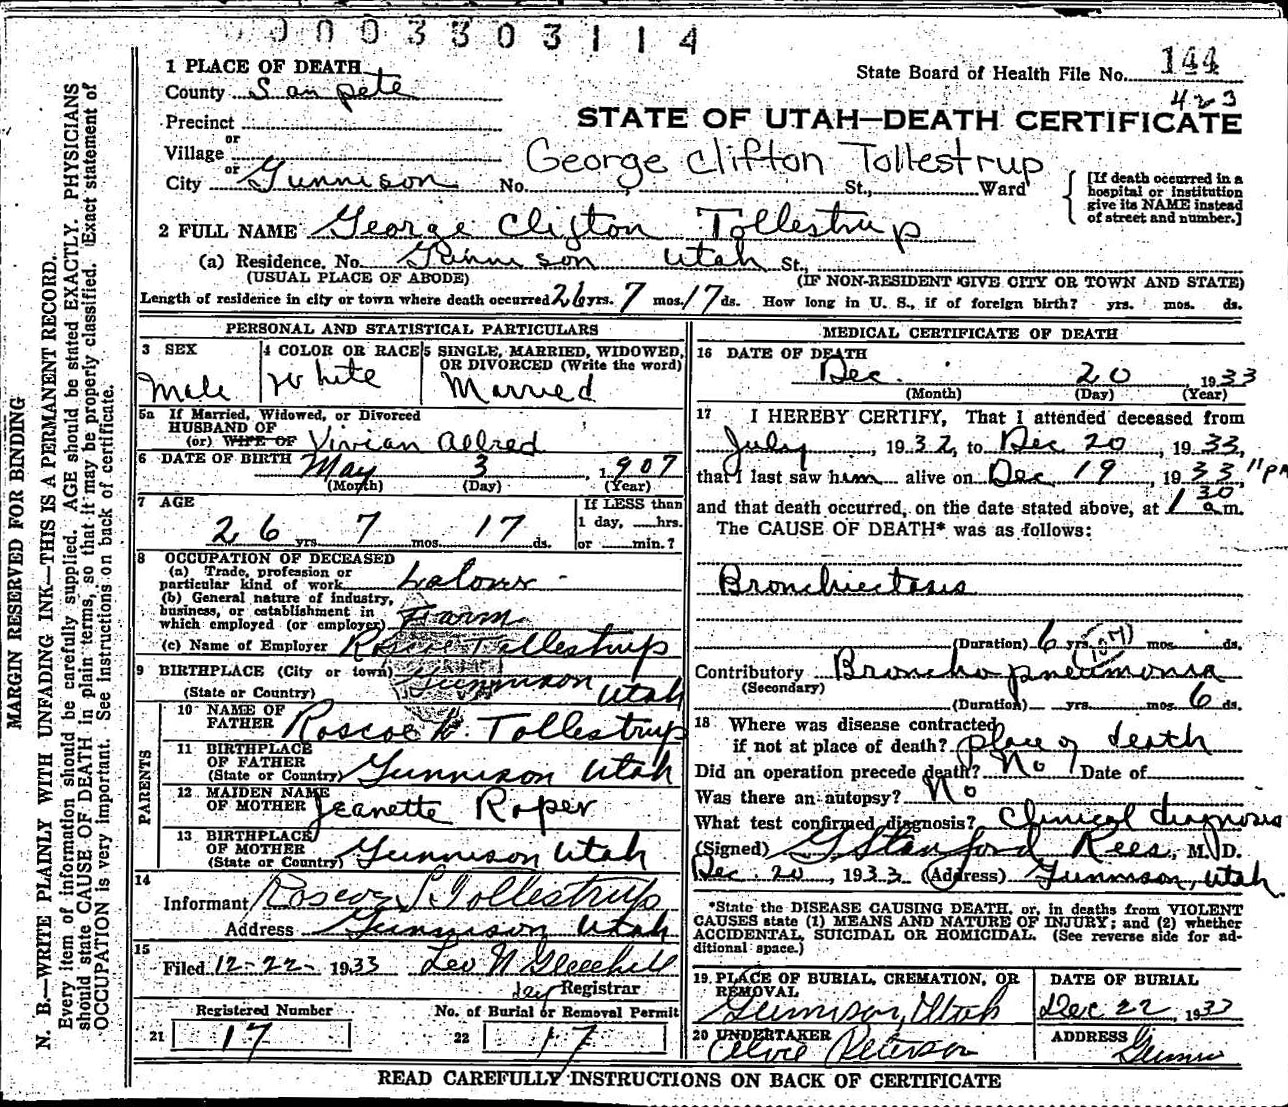 0003303114
State Board of Health File No. 144
423
STATE OF UTAH—DEATH CERTIFICATE
1 PLACE OF DEATH
County Sanpete
Precinct
or
Village
or
City Gunnison No. St., Ward
George Clifton Tollestrup
[If death occurred in a
hospital or institution
give its NAME instead
of street and number.]
2 FULL NAME George Clifton Tollestrup
(a) Residence, No. Gunnison Utah St.,
(USUAL PLACE OF ABODE) (IF NON-RESIDENT GIVE CITY OR TOWN AND STATE)
Length of residence in city or town where death occurred 26 yrs. 7 mos. 17 ds. How long in U. S., if of foreign birth? yrs. mos. ds.
PERSONAL AND STATISTICAL PARTICULARS
3 SEX
Male
4 COLOR OR RACE
White
5 SINGLE, MARRIED, WIDOWED,
OR DIVORCED (Write the word)
Married
5a If Married, Widowed, or Divorced
HUSBAND OF
(or) WIFE OF Vivian Allred
6 DATE OF BIRTH May 3, 1907
(Month) (Day) (Year)
7 AGE
26 yrs. 7 mos. 17 ds.
If LESS than
1 day, hrs.
or min.?
8 OCCUPATION OF DECEASED
(a) Trade, profession or
particular kind of work Labour
(b) General nature of industry,
business, or establishment in
which employed (or employer) Farm
(c) Name of Employer Roscoe Tollestrup
9 BIRTHPLACE (City or town) Gunnison
(State or Country) Utah
PARENTS
10 NAME OF
FATHER Roscoe Tollestrup
11 BIRTHPLACE
OF FATHER
(State or Country) Gunnison Utah
12 MAIDEN NAME
OF MOTHER Jeanette Roper
13 BIRTHPLACE
OF MOTHER
(State or Country) Gunnison Utah
14
Informant Roscoe S. Tollestrup
Address Gunnison Utah
15
Filed 12-22-1933 Leo N Gledhill
Registrar
Registered Number
21 17
No. of Burial or Removal Permit
22 17
MEDICAL CERTIFICATE OF DEATH
16 DATE OF DEATH
Dec. 20, 1933
(Month) (Day) (Year)
17 I HEREBY CERTIFY, That I attended deceased from
July, 1932, to Dec 20, 1933,
that I last saw him alive on Dec 19, 1933, 11 PM
and that death occurred, on the date stated above, at 1 30 a.m.
The CAUSE OF DEATH* was as follows:
Bronchiectasis
(Duration) 6 yrs. mos. ds.
Contributory Broncho pneumonia
(Secondary)
(Duration) yrs. mos. 6 ds.
18 Where was disease contracted
if not at place of death? place of death
Did an operation precede death? No Date of
Was there an autopsy? No
What test confirmed diagnosis? Clinical diagnosis
(Signed) G Stanford Rees, M. D.
Dec. 20, 1933 (Address) Gunnison, Utah.
*State the DISEASE CAUSING DEATH, or, in deaths from VIOLENT
CAUSES state (1) MEANS AND NATURE OF INJURY; and (2) whether
ACCIDENTAL, SUICIDAL OR HOMICIDAL. (See reverse side for ad-
ditional space.)
19 PLACE OF BURIAL, CREMATION, OR
REMOVAL
Gunnison, Utah
DATE OF BURIAL
Dec 22, 1933
20 UNDERTAKER
Peterson
ADDRESS
READ CAREFULLY INSTRUCTIONS ON BACK OF CERTIFICATE
MARGIN RESERVED FOR BINDING
N. B.—WRITE PLAINLY WITH UNFADING INK—THIS IS A PERMANENT RECORD.
Every item of information should be carefully supplied. AGE should be stated EXACTLY. PHYSICIANS
should state CAUSE OF DEATH in plain terms, so that it may be properly classified. Exact statement of
OCCUPATION is very important. See instructions on back of certificate.